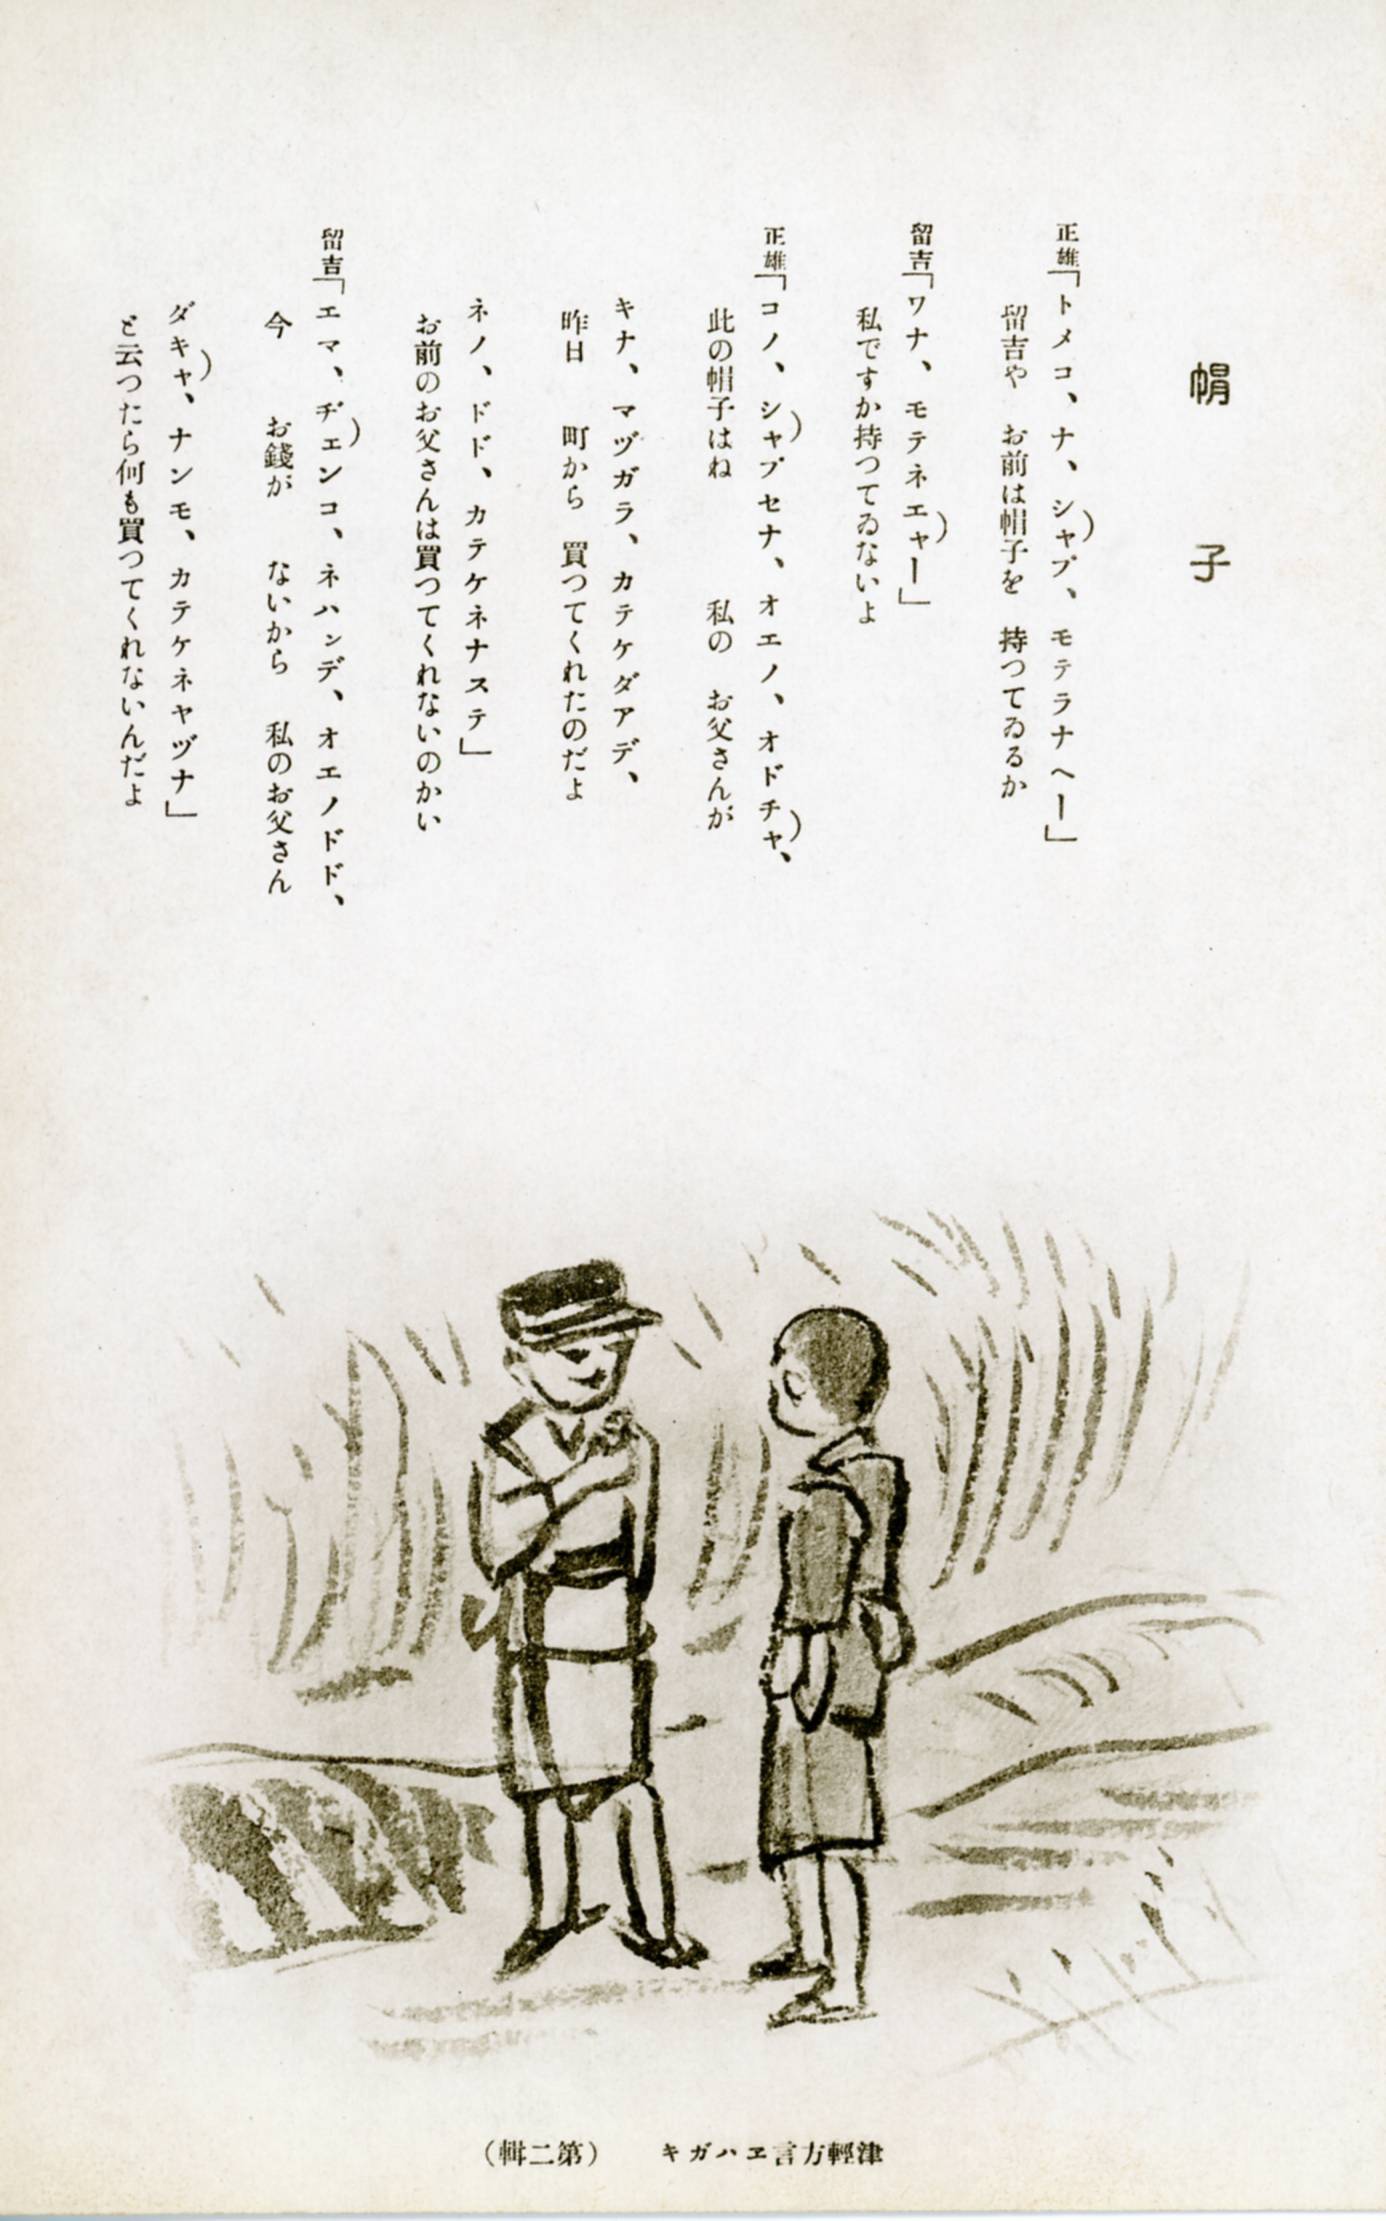 帽子
正雄「トメコ、ナ、シャプ、モテラナヘー」
留吉や お前は帽子を 持つてゐるか
留吉「ワナ、モテネエャー」
私ですか持つてゐないよ
正雄「コノ、シャプセナ、オエノ、オドチャ、
此の帽子はね 私の お父さんが
キナ、マヅガラ、カテケダアデ、
昨日 町から 買つてくれたのだよ
ネノ、ドド、カテケネナステ」
お前のお父さんは買つてくれないのかい
留吉「エマ、ヂェンコ、ネハンデ、オエノドド、
今 お錢が ないから 私のお父さん
ダキャ、ナンモ、カテケネヤヅナ」
と云つたら何も買つてくれないんだよ
津輕方言エハガキ (第二輯)